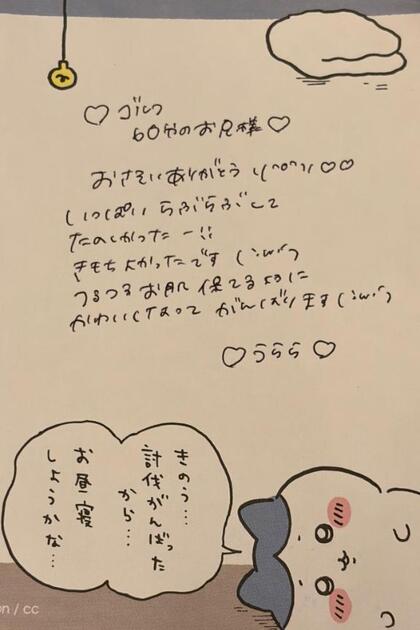 ♡ ゴルフ
60分のお兄様 ♡
おさそいありがとう \(^o^)/ ♡♡
いっぱい らぶらぶして
たのしかったー!!
きもちよかったです (´ω`)
つるつるお肌 保てるように
かわいくなって がんばります (´ω`)
♡ うらら ♡
きのう…
討伐がんばった
から…
お昼寝
しようかな…
on / cc